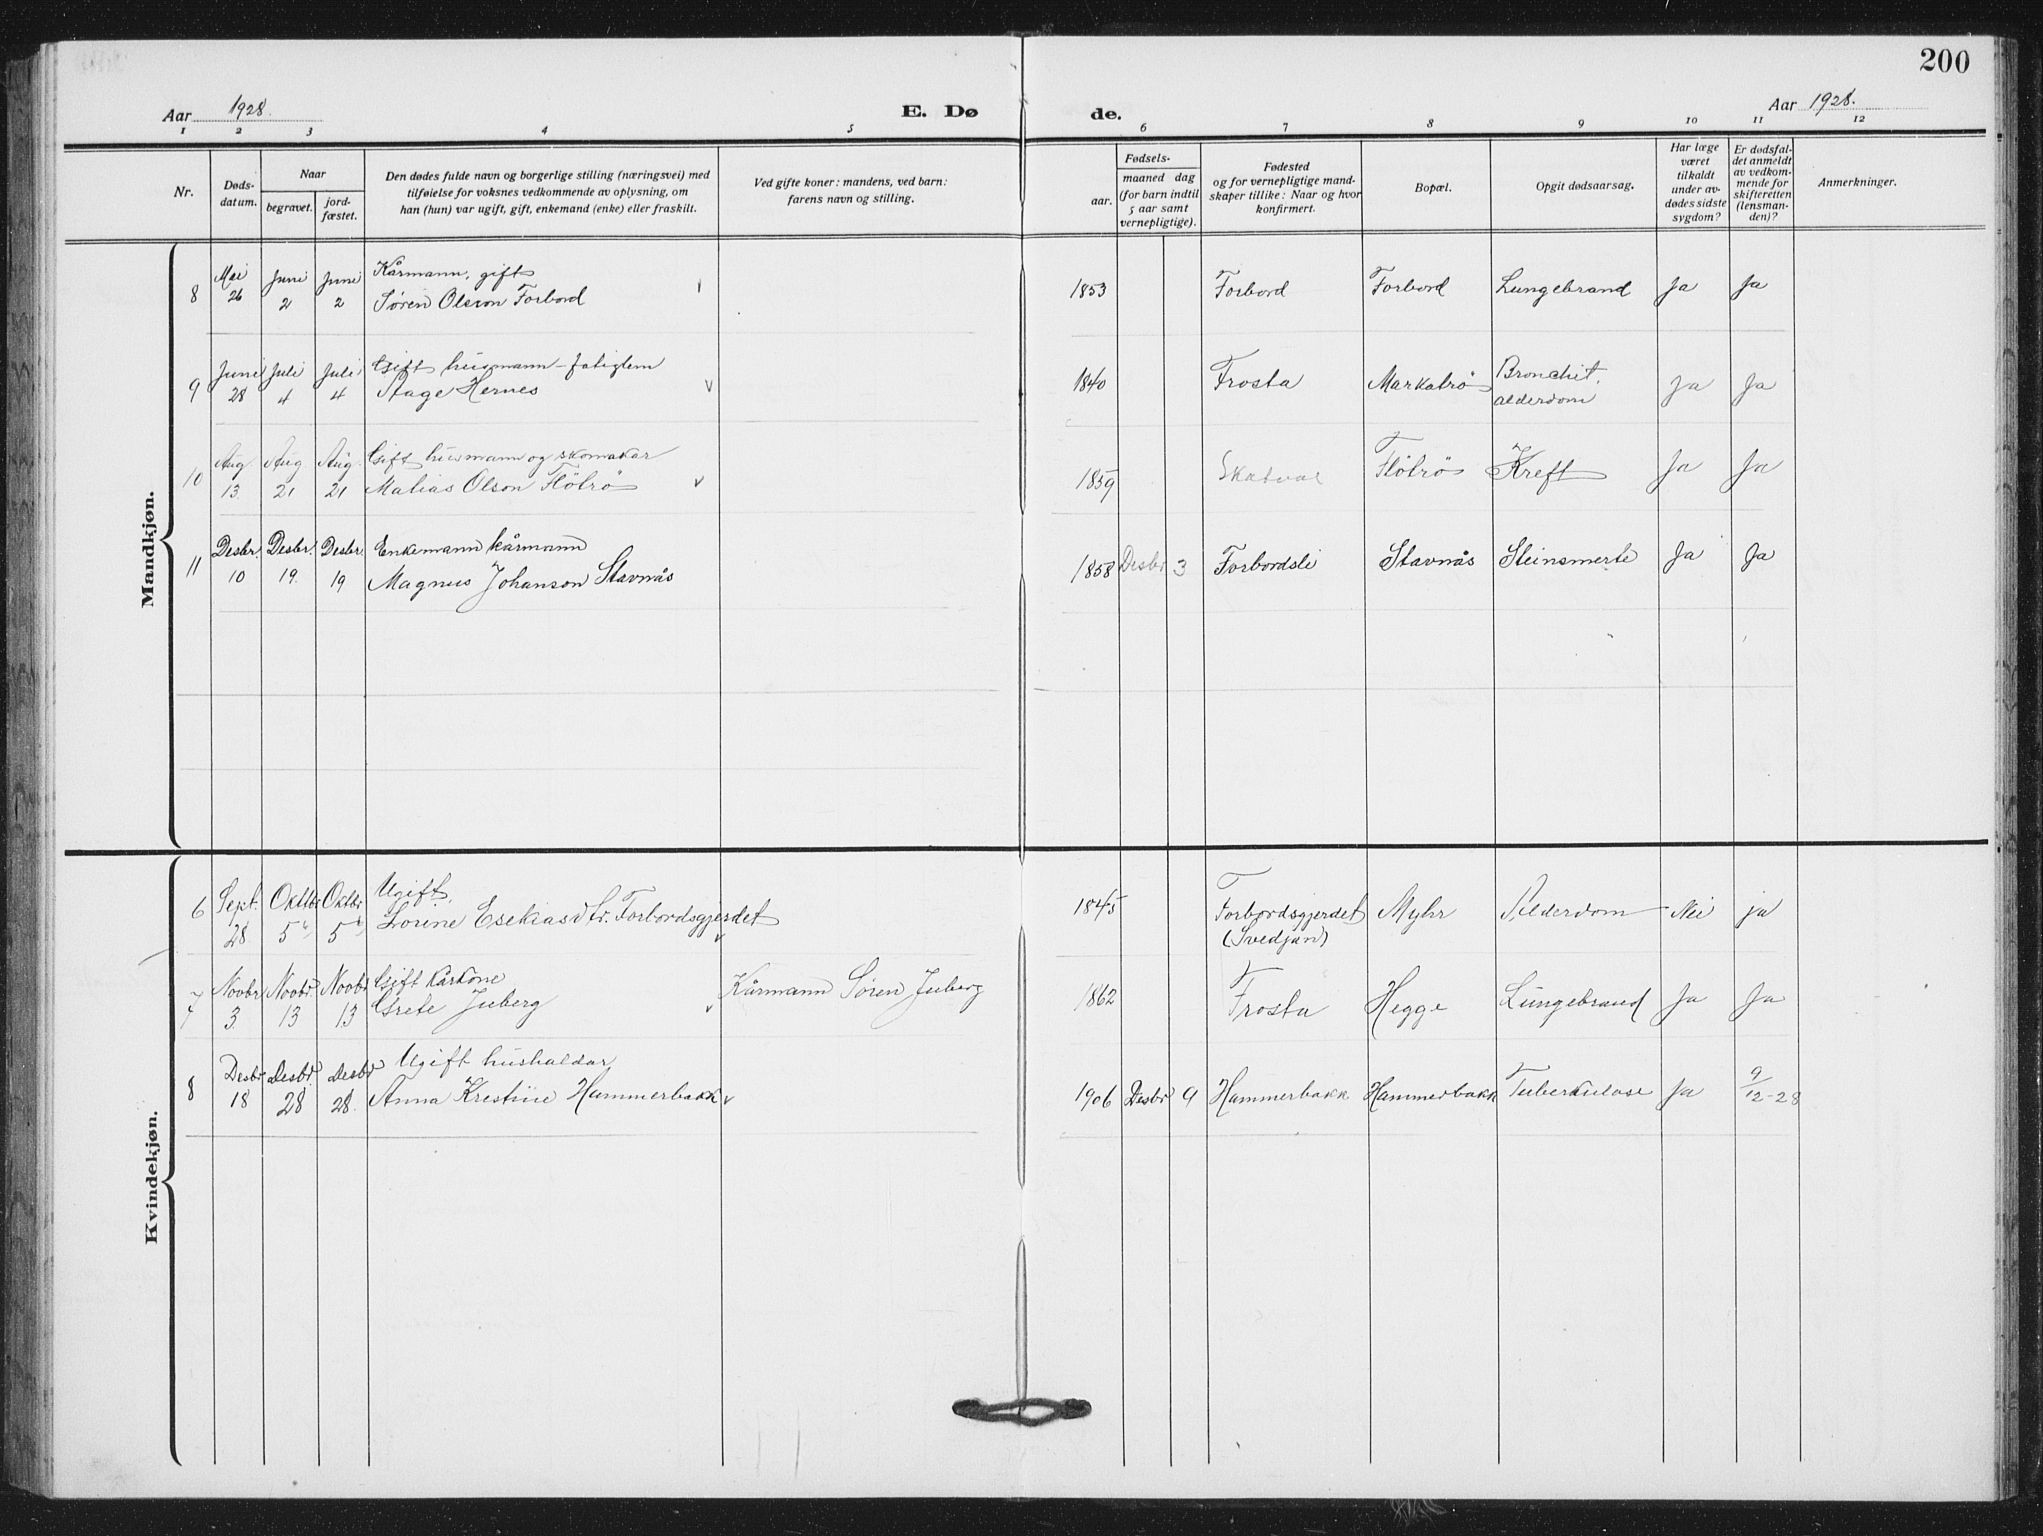 200
Aar 1928.
E. Dø
de.
Aar 1928.
1 2 3 4 5 6 7 8 9 10 11 12
Nr.
Døds-
datum.
Naar
begravet.
jord-
fæstet.
Den dødes fulde navn og borgerlige stilling (næringsvei) med
tilføielse for voksnes vedkommende av oplysning, om
han (hun) var ugift, gift, enkemand (enke) eller fraskilt.
Ved gifte koner: mandens, ved barn:
farens navn og stilling.
Fødsels-
aar.
maaned dag
(for barn indtil
5 aar samt
vernepligtige).
Fødested
og for vernepligtige mand-
skaper tillike: Naar og hvor
konfirmert.
Bopæl.
Opgit dødsaarsag.
Har læge
været
tilkaldt
under av-
dødes sidste
sygdom?
Er dødsfal-
det anmeldt
av vedkom-
mende for
skifteretten
(lensman-
den)?
Anmerkninger.
Mandkjøn.
Mai Juni Juni Kårmann, gift
8 26 2 2 Søren Olsson Forbord 1853 Forbord Forbord Lungebrand Ja Ja
Juni Juli Juli Gift husmann - fatiglem
9 28 4 4 Aage Hernes 1840 Frosta Markabrö Bronchit, Ja Ja
alderdom
Aug. Aug Aug. Gift husmann og skomakar
10 13. 21 21 Matias Olson Flöbrö 1859 Skatval Flöbrö Kreft Ja Ja
Desbr. Desbr. Desbr. Enkemann kårmann
11 10 19. 19 Magnus Johanson Stavnås 1858 Desbr 3 Forbordsli Stavnås Steinsmerte Ja Ja
Kvindekjøn.
Sept. Oktbr Oktbr Ugift,
6 28 5 5 Lorine Esekiasdtr. Forbordsgjerdet 1845 Forbordsgjerdet Myhr Alderdom Nei ja
(Svedjan)
Novbr Novbr. Novbr Gift kårkone
7 3. 13 13 Grete Juberg Kårmann Søren Juberg 1862 Frosta Hegge Lungebrand Ja Ja
Desbr Desbr. Desbr Ugift hushaldar
8 18 28 28. Anna Kristine Hammerbakk 1906 Desbr 9 Hammerbakk Hammerbakk Tuberkulose Ja 9/12-28